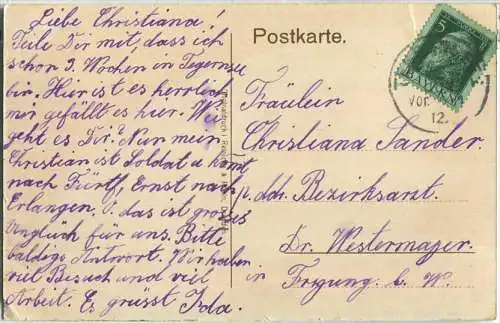 Liebe Christiana!
Teile Dir mit, dass ich
schon 3. Wochen in Tegernsee
bin. Hier ist es herrlich
mir gefällt es hier. Wie
geht es Dir? Nun mein
Christian ist Soldat u. komt
nach Fürth, Ernst nach
Erlangen. O das ist grosses
Unglück für uns. Bitte
baldige Antwort. Wir haben
viel Besuch und viel
Arbeit. Es grüsst Ida.
Postkarte.
5
BAYERN
Vor.
12.
Fräulein
Christiana Sander.
Bezirksarzt.
Dr. Westermayer.
in
b. W.